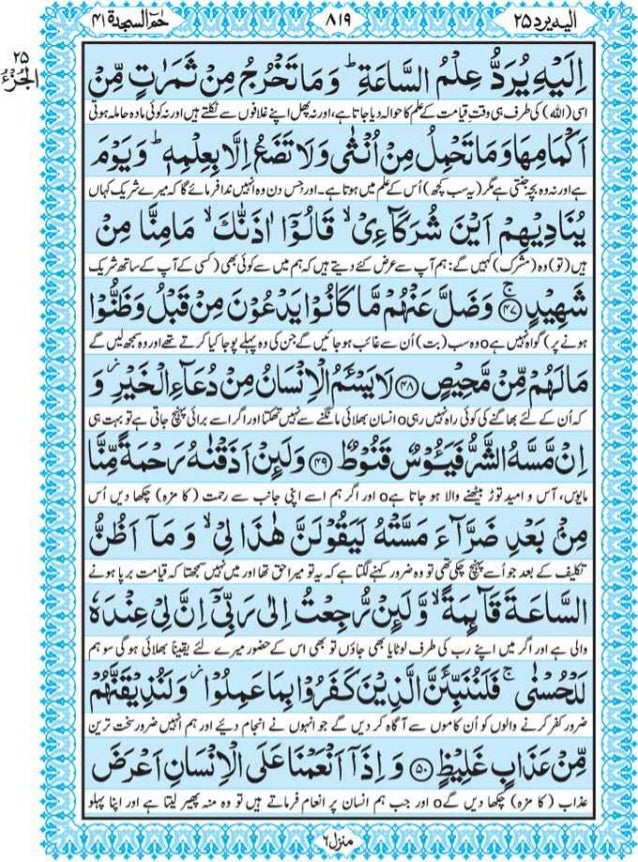 حٰمٓ السجدة ٤١ ٨١٩ اليه يرد ٢٥
٢٥
الجزء
اِلَيْهِ يُرَدُّ عِلْمُ السَّاعَةِ ؕ وَمَا تَخْرُجُ مِنْ ثَمَرٰتٍ مِّنْ
اسی (اللہ) کی طرف ہی وقتِ قیامت کے علم کا حوالہ دیا جاتا ہے، اور نہ پھل اپنے غلافوں سے نکلتے ہیں اور نہ کوئی مادہ حاملہ ہوتی
اَكْمَامِهَا وَمَا تَحْمِلُ مِنْ اُنْثٰى وَلَا تَضَعُ اِلَّا بِعِلْمِهٖ ؕ وَيَوْمَ
ہے اور نہ وہ بچہ جنتی ہے مگر (یہ سب کچھ) اُس کے علم میں ہوتا ہے۔ اور جس دن وہ انہیں ندا فرمائے گا کہ میرے شریک کہاں
يُنَادِيْهِمْ اَيْنَ شُرَكَآءِىْ ۙ قَالُوْۤا اٰذَنّٰكَ ۙ مَامِنَّا مِنْ
ہیں (تو) وہ (مشرک) کہیں گے: ہم آپ سے عرض کئے دیتے ہیں کہ ہم میں سے کوئی بھی (کسی کے آپ کے ساتھ شریک
شَهِيْدٍ ۚ ﴿٤٧﴾ وَضَلَّ عَنْهُمْ مَّا كَانُوْا يَدْعُوْنَ مِنْ قَبْلُ وَظَنُّوْا
ہونے پر) گواہ نہیں ہے o وہ سب (بت) اُن سے غائب ہو جائیں گے جن کی وہ پہلے پوجا کیا کرتے تھے اور وہ سمجھ لیں گے
مَا لَهُمْ مِّنْ مَّحِيْصٍ ﴿٤٨﴾ لَا يَسْـَٔمُ الْاِنْسَانُ مِنْ دُعَآءِ الْخَيْرِ ؗ وَ
کہ اُن کے لئے بھاگنے کی کوئی راہ نہیں رہی o انسان بھلائی مانگنے سے نہیں تھکتا اور اگر اسے برائی پہنچ جاتی ہے تو بہت ہی
اِنْ مَّسَّهُ الشَّرُّ فَيَـُٔوْسٌ قَنُوْطٌ ﴿٤٩﴾ وَلَىِٕنْ اَذَقْنٰهُ رَحْمَةً مِّنَّا
مایوس، آس و امید توڑ بیٹھنے والا ہو جاتا ہے o اور اگر ہم اسے اپنی جانب سے رحمت (کا مزہ) چکھا دیں اُس
مِنْۢ بَعْدِ ضَرَّآءَ مَسَّتْهُ لَيَقُوْلَنَّ هٰذَا لِىْ ۙ وَ مَاۤ اَظُنُّ
تکلیف کے بعد جو اُسے پہنچ چکی تھی تو وہ ضرور کہنے لگتا ہے کہ یہ تو میرا حق تھا اور میں نہیں سمجھتا کہ قیامت برپا ہونے
السَّاعَةَ قَآىِٕمَةً ۙ وَّلَىِٕنْ رُّجِعْتُ اِلٰى رَبِّىْۤ اِنَّ لِىْ عِنْدَهٗ
والی ہے اور اگر میں اپنے رب کی طرف لوٹایا بھی جاؤں تو بھی اس کے حضور میرے لئے یقیناً بھلائی ہوگی سو ہم
لَلْحُسْنٰى ۚ فَلَنُنَبِّئَنَّ الَّذِيْنَ كَفَرُوْا بِمَا عَمِلُوْا ؗ وَلَنُذِيْقَنَّهُمْ
ضرور کفر کرنے والوں کو اُن کاموں سے آگاہ کر دیں گے جو انہوں نے انجام دیئے اور ہم انہیں ضرور سخت ترین
مِّنْ عَذَابٍ غَلِيْظٍ ﴿٥٠﴾ وَ اِذَاۤ اَنْعَمْنَا عَلَى الْاِنْسَانِ اَعْرَضَ
عذاب (کا مزہ) چکھا دیں گے o اور جب ہم انسان پر انعام فرماتے ہیں تو وہ منہ پھیر لیتا ہے اور اپنا پہلو
منزل ٦